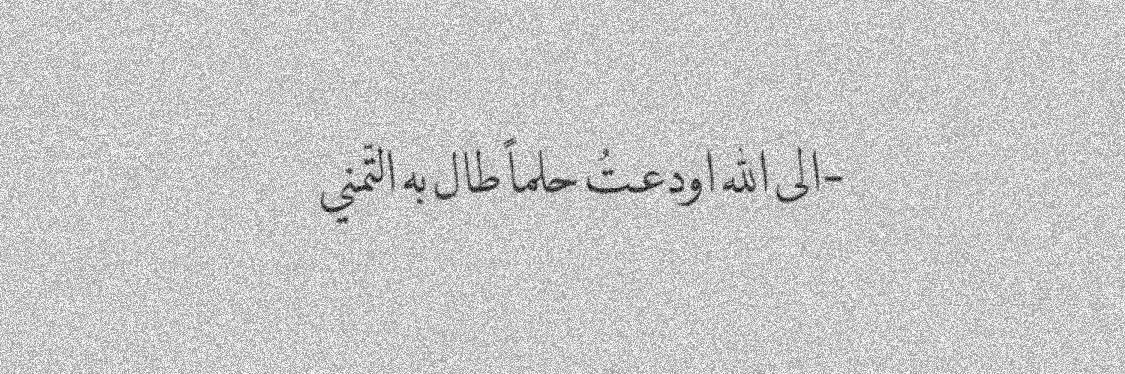 -الى الله اودعتُ حلماً طال به التّمني